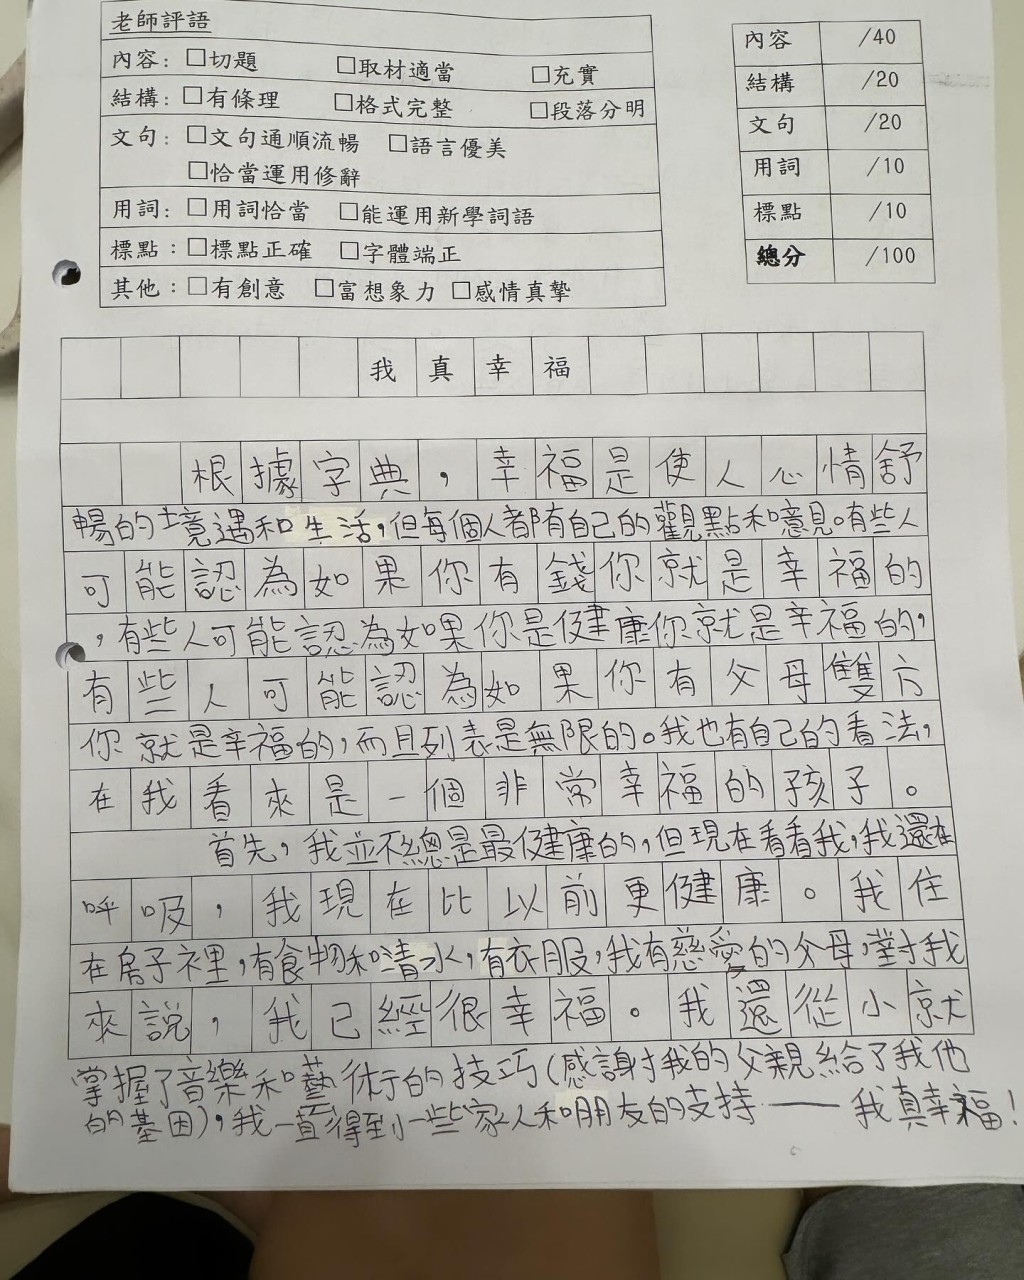 老師評語
內容：□切題 □取材適當 □充實
結構：□有條理 □格式完整 □段落分明
文句：□文句通順流暢 □語言優美
□恰當運用修辭
用詞：□用詞恰當 □能運用新學詞語
標點：□標點正確 □字體端正
其他：□有創意 □富想象力 □感情真摯
內容 /40
結構 /20
文句 /20
用詞 /10
標點 /10
總分 /100
我真幸福
根據字典，幸福是使人心情舒
暢的境遇和生活，但每個人都有自己的觀點和意見。有些人
可能認為如果你有錢你就是幸福的
，有些人可能認為如果你是健康你就是幸福的，
有些人可能認為如果你有父母雙方
你就是幸福的，而且列表是無限的。我也有自己的看法，
在我看來是一個非常幸福的孩子。
首先，我並不總是最健康的，但現在看看我，我還在
呼吸，我現在比以前更健康。我住
在房子裡，有食物和清水，有衣服，我有慈愛的父母，對我
來說，我已經很幸福。我還從小就
掌握了音樂和藝術的技巧（感謝我的父親給了我他
的基因），我一直得到一些家人和朋友的支持——我真幸福！